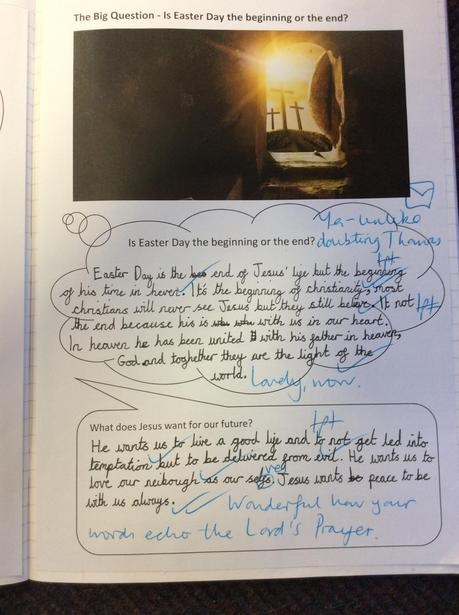 The Big Question - Is Easter Day the beginning or the end?
Yes - unlike
Is Easter Day the beginning or the end? doubting Thomas
tpt
Easter Day is the end of Jesus' life but the beginning
of his time in heven. It's the beginning of christianity, most
christians will never see Jesus but they still believe. It not tpt
the end because his is with us in our heart.
In heaven he has been united with his father in heaven,
God and toghether they are the light of the
world. Lovely, wow.
What does Jesus want for our future?
tpt
He wants us to live a good life and to not get led into
temptation but to be delivered from evil. He wants us to
love our neibough as our selfs. Jesus wants peace to be
ves
with us always. Wonderful how your
words echo the Lord's Prayer.